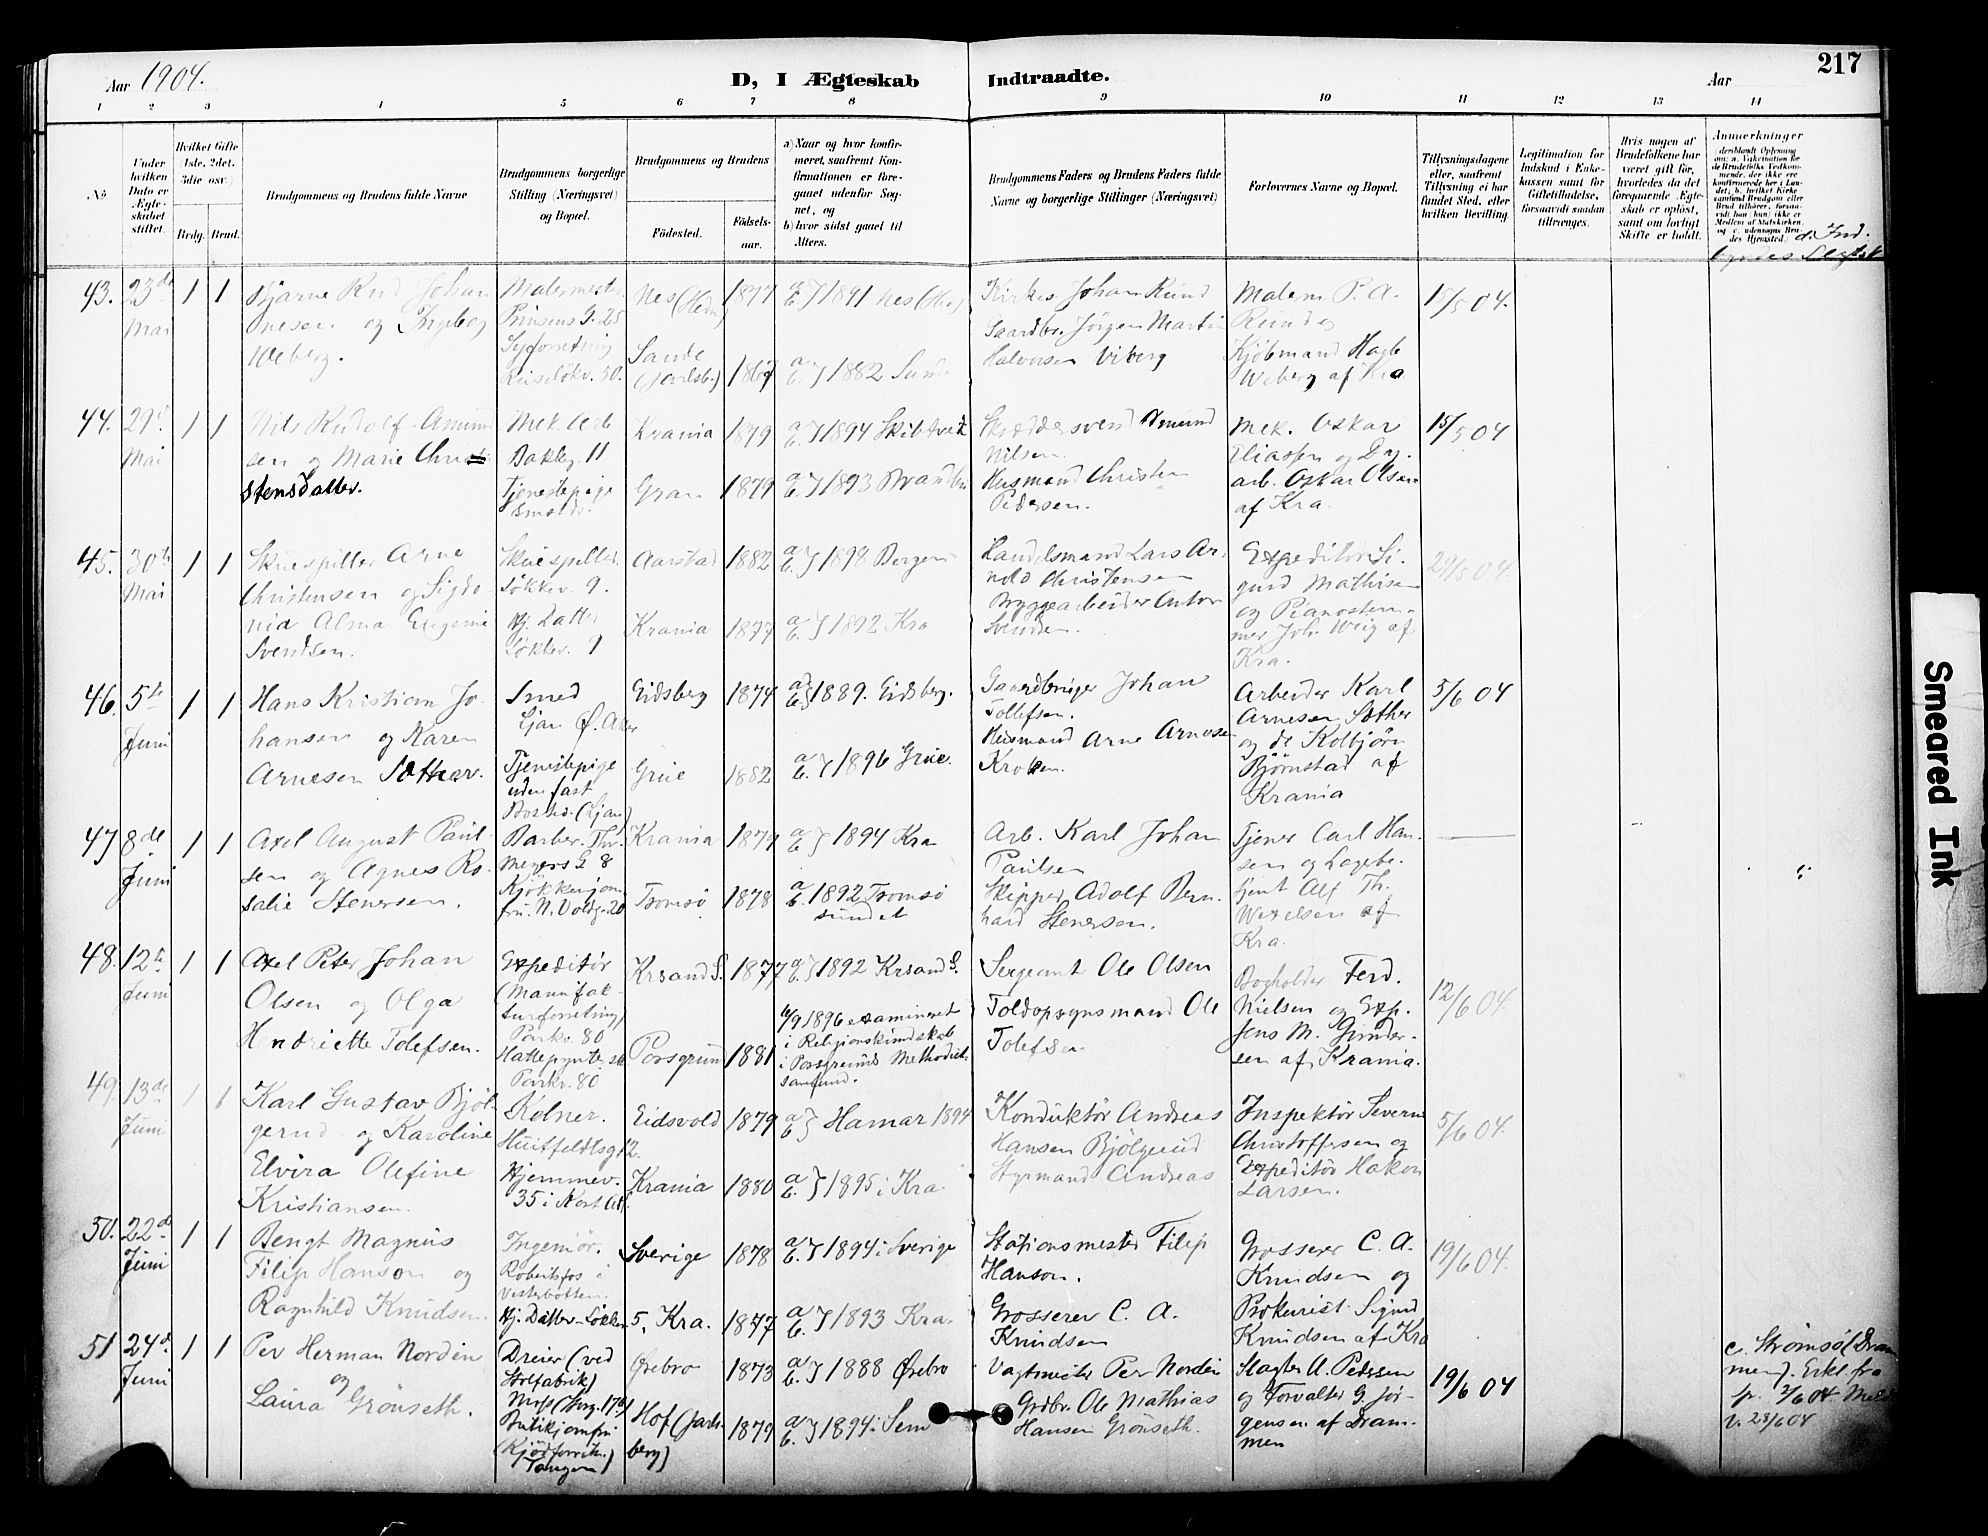 Aar 1904.
D, I Ægteskab Indtraadte.
Aar
217
1 2 3 4 5 6 7 8 9 10 11 12 13 14
No
Under hvilken Dato er Ægteskabet stiftet.
Hvilket Gifte 1ste, 2det. 3die osv.)
Brdg. Brud.
Brudgommens og Brudens fulde Navne
Brudgommens borgerlige Stilling (Næringsvei) og Bopæl.
Brudgommens og Brudens
Födested. Födsels-aar.
a) Naar og hvor konfirmeret, saafremt Konfirmationen er foregaaet udenfor Sognet, og
b) hvor sidst gaaet til Alters.
Brudgommens Faders og Brudens Faders fulde Navne og borgerlige Stillinger (Næringsvei)
Forlovernes Navne og Bopæl.
Tillysningsdagene eller, saafremt Tillysning ei har fundet Sted, efter hvilken Bevilling.
Legitimation for Indskud i Enkekassen samt for Giftetilladelse, forsaavidt saadan tiltrænges.
Hvis nogen af Brudefolkene har været gift før, hvorledes da det foregaaende Ægteskab er opløst, samt om lovligt Skifte er holdt.
Anmerkninger
43. 23de Mai 1 1
Bjarne Rud Johannesen og Ingeborg Weberg.
Malermester Prinsens G. 25
Syforretning 50.
Nes (Hedm) 1877
Sande (Jarlsb.) 1867
a b } 1891 Nes (Hed)
a b } 1882 Sande
Johan Ruud
Gaardbr. Jörgen Martin Halvorsen Viberg
Malem. P. A. Ruud og
Kjöbmand Weberg af Kra
15/5 04.
44. 29de Mai 1 1
Nils Rudolf Amundsen og Marie Christensdatter.
Mek. Arb Bakkeg. 11
Tjenestepige
Krania 1879
Gran 1879
a b } 1894
a b } 1893 Brandbu
Skræddersvend Amund Nilsen.
Husmand Christen Pedersen.
Mek. Oskar Eliassen og Dag. arb. Oskar Olsen af Kra.
15/5 04
45. 30te Mai 1 1
Skuespiller Arne Christensen og Sigdonia Alma Eugenie Svendsen.
Skuespiller. Løkkev. 9.
Hj. Datter Løkkev. 9
Aarstad 1882
Krania 1877
a b } 1898 Bergen
a b } 1892 Kra
Handelsmand Lars Arnold Christensen
Byggearbeider Anton Svendsen.
Expeditör Sigurd Mathisen og Pianostemmer Joh. af Kra.
29/5 04.
46. 5te Juni 1 1
Hans Kristian Johansen og Karen Arnesen Sother.
Smed Ljan Ø. Aker
Tjenestepige uden fast Bosted. (Ljan)
Eidsberg 1874
Grue 1882
a b } 1889. Eidsberg.
a b } 1896 Grue.
Gaardbruger Johan Tollefsen.
Husmand Arne Arnesen Kroken.
Arbeider Karl Arnesen Sother og do Kolbjörn Björnstad af Krania
5/6 04
47 8de Juni 1 1
Axel August Paulsen og Agnes Rosalie Stenersen.
Barber. Th. Meyers G 8
Kjökkenjomfru. N. Voldg. 20
Krania 1879
Tromsö 1878
a b } 1894 Kra
a b } 1892 Tromsösundet
Arb. Karl Johan Paulsen
Skipper Adolf Bernhard Stenersen.
Tjener Carl Hansen og Lagebetjent Alf Th. Wexelsen af Kra.
48. 12te Juni 1 1
Axel Peter Johan Olsen og Olga Hendriette Tolefsen.
Expeditör (Manufakturforretning) Parkv. 80
Hattepynterske Parkv. 80
Krsand S. 1877
Porsgrund 1881
a b } 1892 Krsand S.
1896 examineret i Religionskundskab i Porsgrunds Methodistsamfund.
Sergeant Ole Olsen
Toldopsynsmand Ole Tolefsen
Bogholder Ferd. Nielsen og Exp. Jens M. Gundersen af Krania.
12/6 04.
49. 13de Juni 1 1
Karl Gustav Bjölgerud og Karoline Elvira Olefine Kristiansen.
Kelner. Huitfeldtsg. 12.
Hjemmev. 35 i
Eidsvold 1879
Krania 1880
a b } Hamar 1894
a b } 1895 i Kra.
Konduktör Andreas Hansen Bjölgerud
Styrmand Andreas
Inspektör Severin Christoffersen og Expeditör Hakon Larsen.
5/6 04.
50. 22de Juni 1 1
Bengt Magnus Filip Hanson og Ragnhild Knudsen.
Ingeniör. Robertsfos i Vesterbotten.
Hj. Datter Løkkev 5,
Sverige 1878
Kra. 1877
a b } 1894 i Sverige
a b } 1893 Kra.
Stationsmester Filip Hanson.
Grosserer C. A. Knudsen
Grosserer C. A. Knudsen og
Prokurist Sigurd Knudsen af Kra
19/6 04.
51 24de Juni 1 1
Per Herman Nordin og Laura Grönseth.
Dreier (ved Stolfabrik) Moss
Butikjomfru (Kjödforretn.) Tangen)
Ørebro 1873
Hof (Jarlsberg) 1879
a b } 1888 Ørebro
a b } 1894 i Sem
Vagtmester Per Nordin
Grdbr. Ole Mathias Hansen Grönseth.
Slagter A. Pedersen og Forvalter G. Jörgensen af Drammen
19/6 04
c. Strømsø (Drammen). Erkl. fra
V. 28/6 04
Smeared Ink